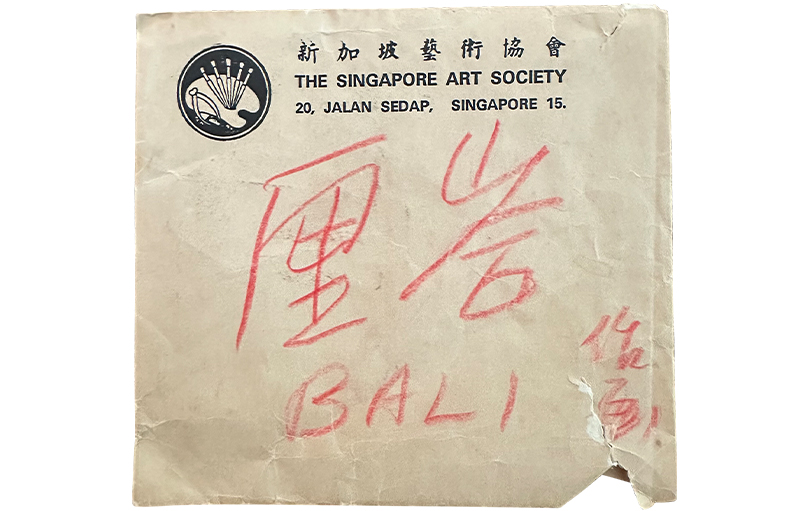 新加坡藝術協會
THE SINGAPORE ART SOCIETY
20, JALAN SEDAP, SINGAPORE 15.
峇厘
BALI
作画